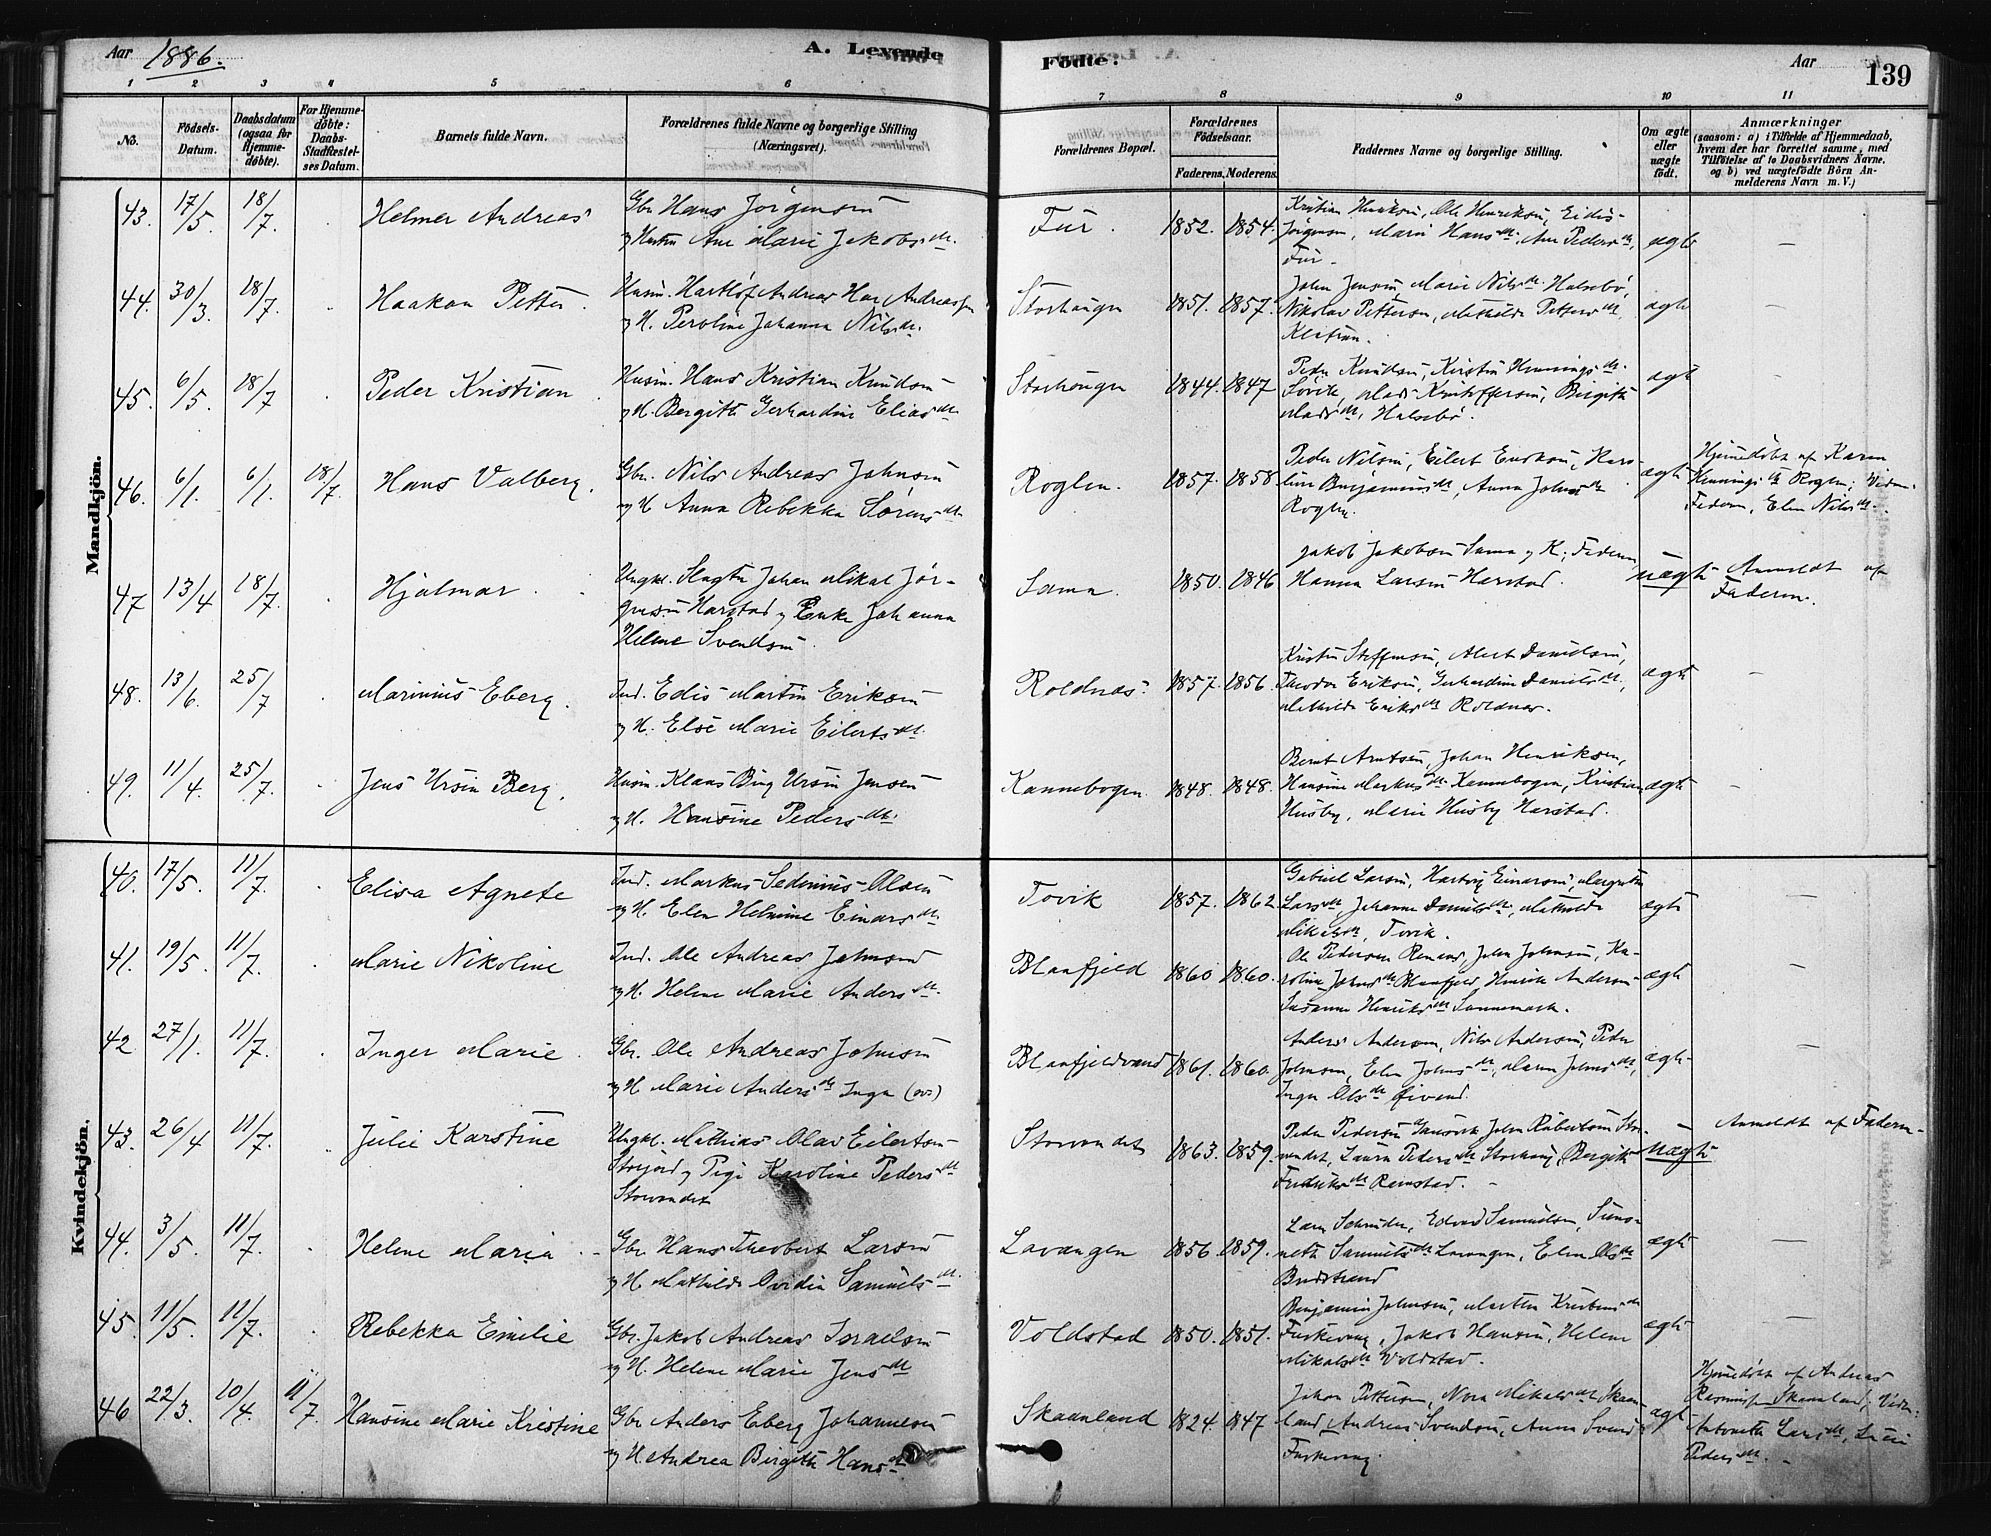 Aar 1886.
A. Levende
Fødte:
Aar
139
1 2 3 4 5 6 7 8 9 10 11
No.
Fødsels-
Datum.
Daabsdatum
(ogsaa for
Hjemme-
døbte).
For Hjemme-
døbte:
Daabs-
Stadfæstel-
ses Datum.
Barnets fulde Navn.
Forældrenes fulde Navne og borgerlige Stilling
(Næringsvei).
Forældrenes Bopæl.
Forældrenes
Fødselsaar.
Faderens. Moderens.
Faddernes Navne og borgerlige Stilling.
Om ægte
eller
uægte
født.
Anmærkninger
(saasom: a) i Tilfælde af Hjemmedaab,
hvem der har forrettet samme, med
Tilføielse af to Daabsvidners Navne.
og b) ved uægtefødte Børn An-
melderens Navn m. V.)
Mandkjön.
43. 17/5. 18/7. Helmer Andreas
Gbr Hans Jörgensen
og Hustru Ane Marie Jakobsdt.
Fur. 1852. 1854.
Kristian Henriksen, Ole Henriksen, Eidis
Jörgensen, Marie Hansdt., Ane Pedersdt,
Fur. ægte —
44. 30/3. 18/7. Haakon Petter
Husm. Hartlöf Andreas Andreassen
og H. Peroline Johanna Nilsdt.
Storhaugen 1851. 1857.
John Jensen Marie Nilsdt. Halsebö,
Nikolai Pettersen, Mathilde Pettersdt,
ægte —
45. 6/5. 18/7 Peder Kristian
Husm. Hans Kristian Knudsen
og H. Bergitte Gerhardine Eliasdt.
Storhaugen 1844. 1847
Peder Knudsen, Kirstin Henningsdt.
Sörvik, Mads Kristoffersen, Birgitte
Madsdt, Halsebö. ægte —
46. 6/1. 6/1. 18/7. Hans Valberg.
Gbr. Nils Andreas Johnsen
og H Anna Rebekka Sörensdt.
Roglen. 1857. 1858
Peder Nilsen, Eilert Eriksen, Karo-
line Benjaminsdt, Anna Johnsdt
Roglen. ægte
Hjemmedöbt af Karen
Henningsdt Roglen; Vidn:
Faderen, Elen Nilsdt.
47 13/4 18/7. Hjalmar
Ungkl. Slagter Johan Mikal Jör-
gensen Harstad og Enke Johanna
Helene Svendsen
Sama. 1850. 1846
Jakob Jakobsen Sama og K; Faderen
Hanna Larsen Harstad. uægte
Anmeldt af
Faderen.
48. 13/6. 25/7 Marinius Eberg.
Ind. Edis Martin Eriksen
og H. Else Marie Eilertsdt.
Roldnæs. 1857. 1856.
Kristen Steffensen, Albert Danielsen,
Theodor Eriksen, Gerhardine Danielsdt,
Mathilde Eriksdt Roldnæs. ægte —
49. 11/4. 25/7. Jens Ursin Berg.
Husm. Klaus Bing Ursin Jensen
og H. Hansine Pedersdt.
Kannebogen. 1848. 1848.
Bernt Arntsen, Johan Henriksen,
Hansine Markusdt. Kannebogen, Kristian
Husby, Marie Husby Harstad. ægte —
Kvindekjön.
40. 17/5. 11/7. Elisa Agnete
Ind. Markus Sedenius Olsen
og H. Elen Helmine Einarsdt.
Tovik 1857. 1862.
Gabriel Larsen, Hartvig Einarsen, Margrethe
Larsdt, Johanne Danielsdt, Mathilde
Mikalsdt, Tovik. ægte —
41. 19/5. 11/7. Marie Nikoline
Ind. Ole Andreas Johnsen
og H. Helene Marie Andersdt.
Blaafjeld 1860 1860.
Ole Pedersen Renaas, John Johnsen, Ka-
roline Johnsdt Blaafjeld, Henrik Andersen
Susanne Henriksdt Sannemark. ægte —
42 27/1. 11/7. Inger Marie
Gbr. Ole Andreas Johnsen
og H Marie Andersdt Inga
Blaafjeldvand 1861. 1860.
Anders Andersen, Nils Andersen, Peder
Johnsen, Elen Johnsdt, Maren Johnsdt,
Inger Olsdt Öivand. ægte —
43. 26/4 11/7. Julie Karstine
Ungkl. Mathias Olav Eilertsen
Storjord og Pige Karoline Pedersdt
Storvandet
Storvandet 1863. 1859.
Peder Pedersen Gausvik John Robertsen Stor-
vandet, Laura Pedersdt Storhaug, Bergitte
Fredriksdt Remstad. uægte
Anmeldt af Faderen
44. 3/5. 11/7. Helene Maria
Gbr. Hans Theobert Larsen
og H. Mathilde Ovidia Samuelsdt.
Lavangen 1856. 1859.
Lars Schröder, Edvard Samuelsen,
Samuelsdt Lavangen, Elen Olsdt
Budstrand ægte —
45. 11/5. 11/7. Rebekka Emilie
Gbr. Jakob Andreas Israelsen
og H. Helene Marie Jensdt
Voldstad 1850. 1851.
Benjamin Johnsen, Marthe Kristensdt
Fuskevaag, Jakob Hansen, Helene
Mikalsdt Voldstad. ægte —
46 22/3. 10/4. 11/7. Hansine Marie Kristine
Gbr Anders Eberg Johannesen
og H. Andrea Birgitte Hansdt
Skaanland 1824. 1847
Johan Pettersen, Nora Mikalsdt Skaan-
land Andreas Svendsen, Anna Svends
Fuskevaag. ægte
Hjemmedöbt af Andreas
Rasmussen Skaanland; Vidn:
Antonette Larsdt,
Pedersdt.